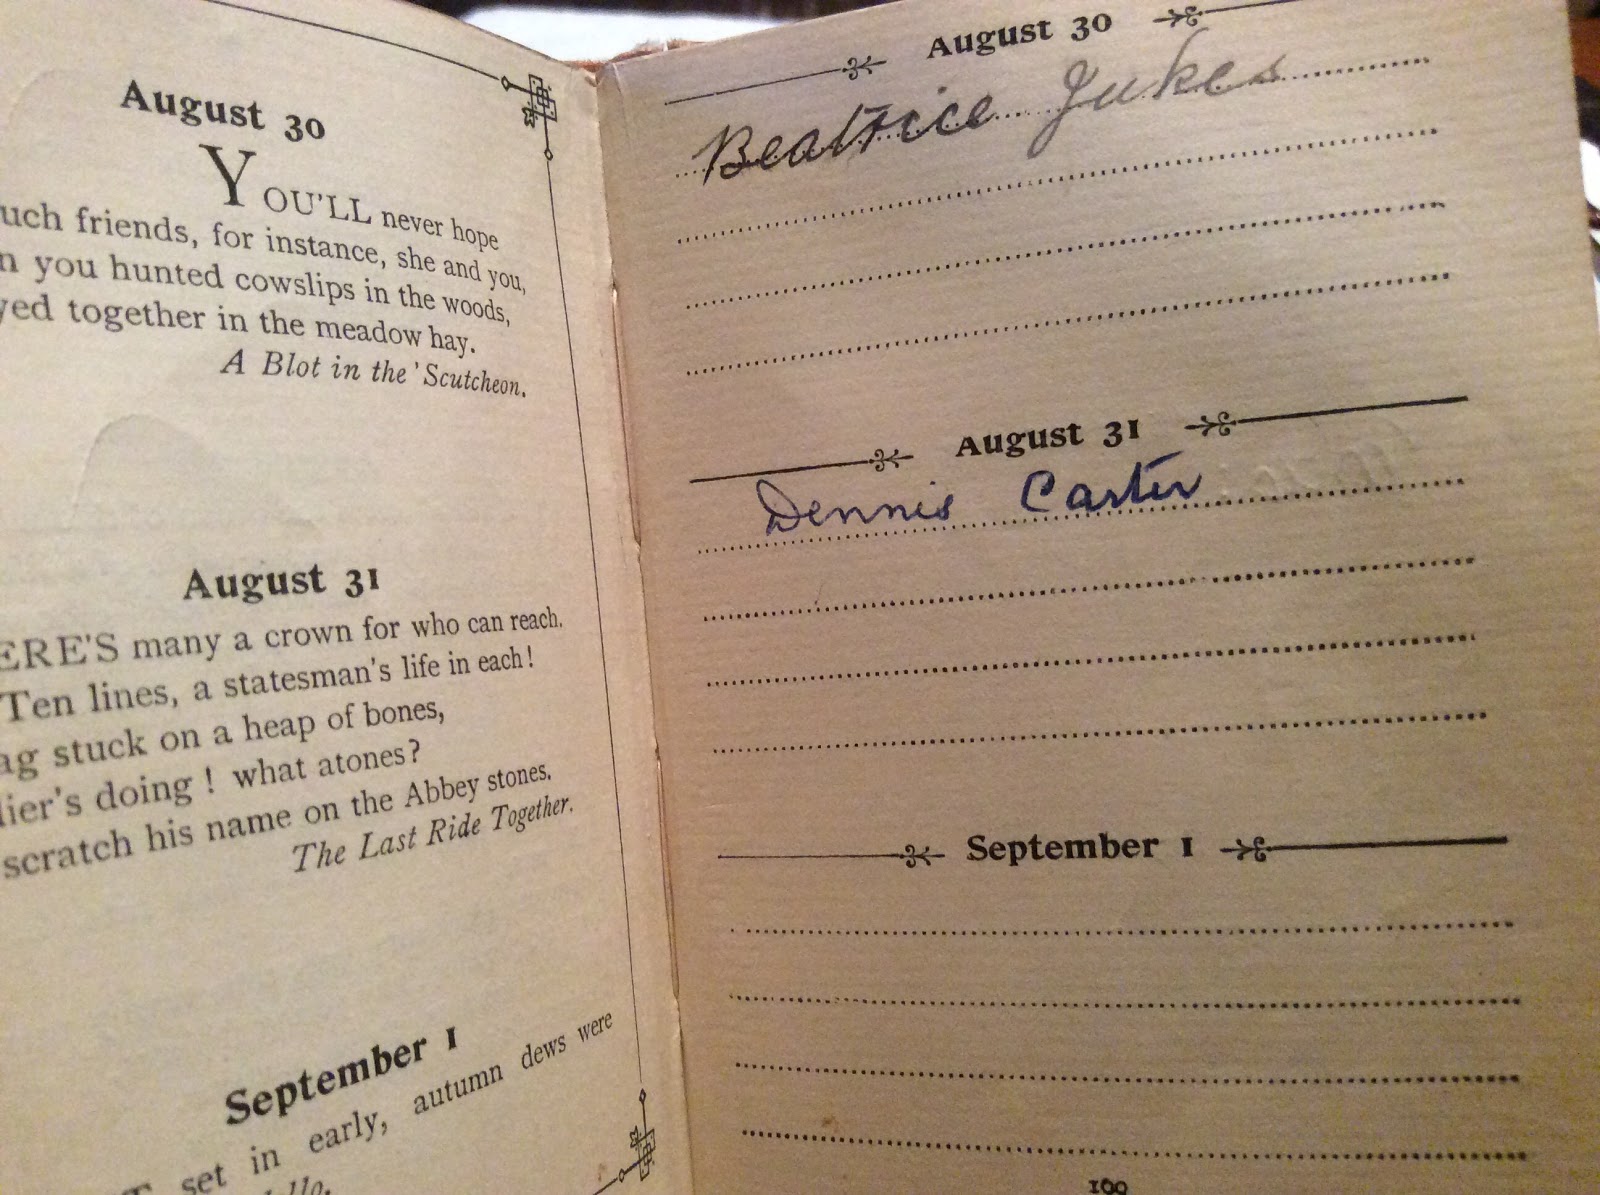 August 30
YOU'LL never hope
uch friends, for instance, she and you,
n you hunted cowslips in the woods,
yed together in the meadow hay.
A Blot in the 'Scutcheon.
August 31
ERE'S many a crown for who can reach.
Ten lines, a statesman's life in each!
ag stuck on a heap of bones,
lier's doing! what atones?
scratch his name on the Abbey stones.
The Last Ride Together.
September 1
set in early, autumn dews were
August 30
Beatrice Jukes
August 31
Dennis Carter
September 1
169